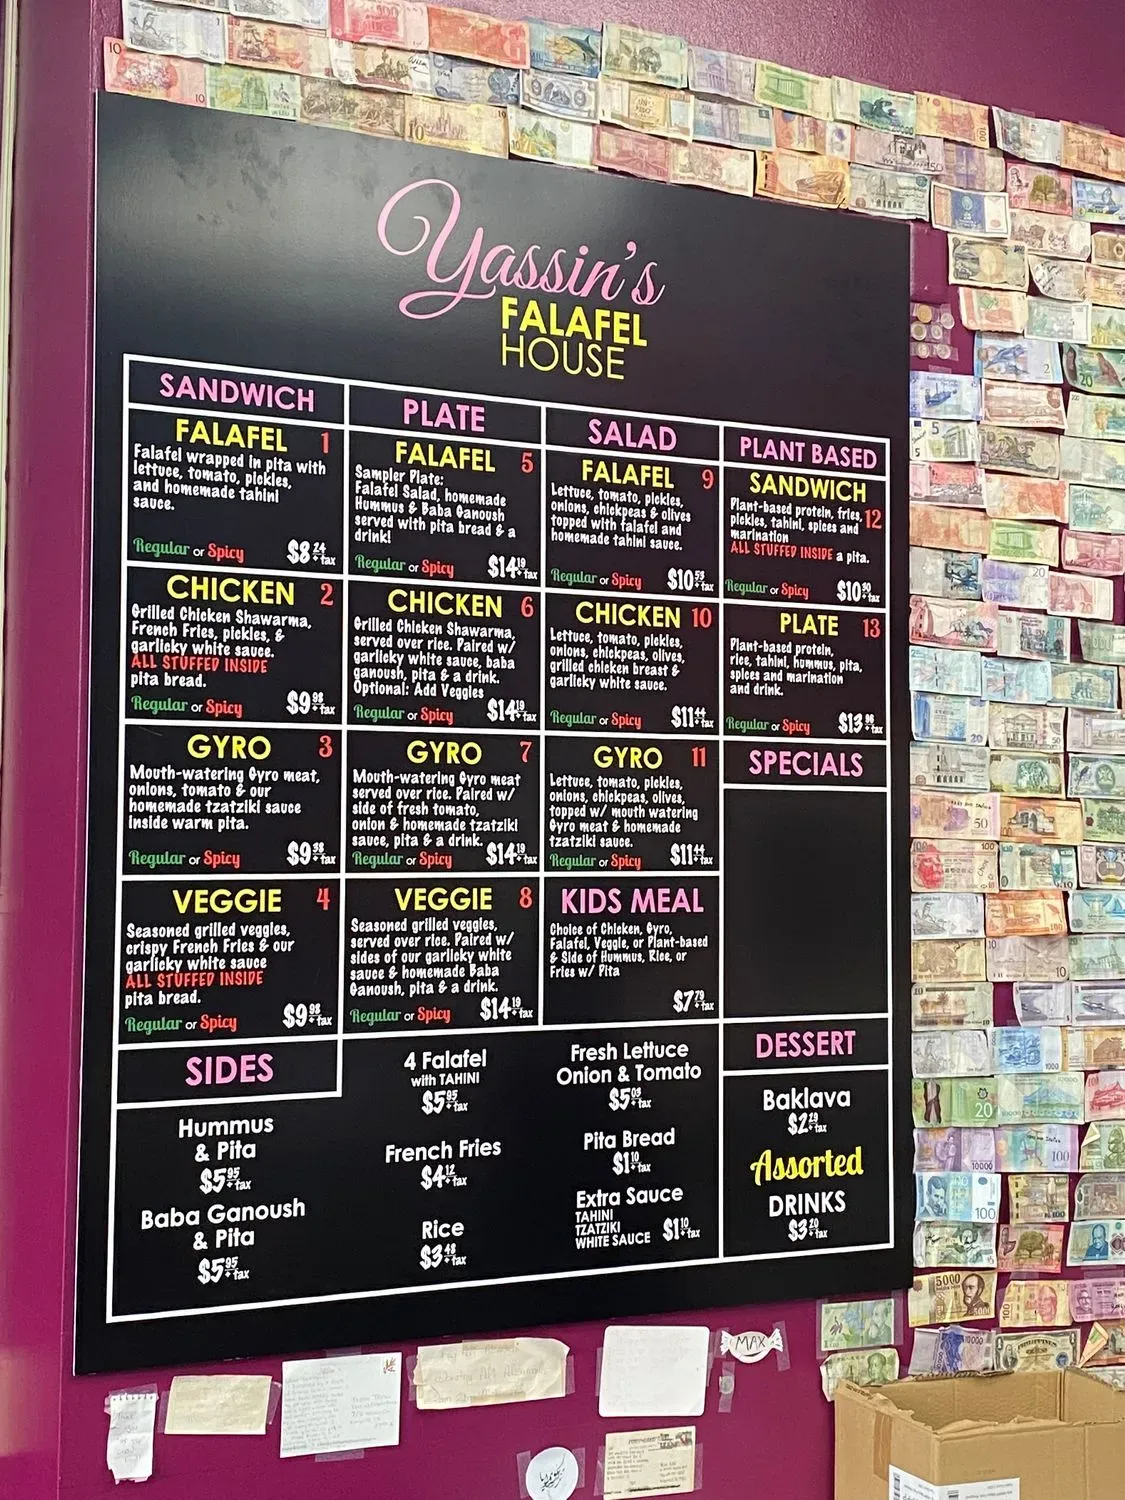 Yassin's
FALAFEL
HOUSE
SANDWICH
FALAFEL 1
Falafel wrapped in pita with
lettuce, tomato, pickles,
and homemade tahini
sauce.
Regular or Spicy $8 24 + tax
CHICKEN 2
Grilled Chicken Shawarma,
French Fries, pickles, &
garlicky white sauce.
ALL STUFFED INSIDE
pita bread.
Regular or Spicy $9 98 + tax
GYRO 3
Mouth-watering Gyro meat,
onions, tomato & our
homemade tzatziki sauce
inside warm pita.
Regular or Spicy $9 98 + tax
VEGGIE 4
Seasoned grilled veggies,
crispy French Fries & our
garlicky white sauce
ALL STUFFED INSIDE
pita bread.
Regular or Spicy $9 98 + tax
PLATE
FALAFEL 5
Sampler Plate:
Falafel Salad, homemade
Hummus & Baba Ganoush
served with pita bread & a
drink!
Regular or Spicy $14 19 + tax
CHICKEN 6
Grilled Chicken Shawarma,
served over rice. Paired w/
garlicky white sauce, baba
ganoush, pita & a drink.
Optional: Add Veggies
Regular or Spicy $14 19 + tax
GYRO 7
Mouth-watering Gyro meat
served over rice. Paired w/
side of fresh tomato,
onion & homemade tzatziki
sauce, pita & a drink.
Regular or Spicy $14 19 + tax
VEGGIE 8
Seasoned grilled veggies,
served over rice. Paired w/
sides of our garlicky white
sauce & homemade Baba
Ganoush, pita & a drink.
Regular or Spicy $14 19 + tax
SALAD
FALAFEL 9
Lettuce, tomato, pickles,
onions, chickpeas & olives
topped with falafel and
homemade tahini sauce.
Regular or Spicy $10 + tax
CHICKEN 10
Lettuce, tomato, pickles,
onions, chickpeas, olives,
grilled chicken breast &
garlicky white sauce.
Regular or Spicy $11 44 + tax
GYRO 11
Lettuce, tomato, pickles,
onions, chickpeas, olives,
topped w/ mouth watering
Gyro meat & homemade
tzatziki sauce.
Regular or Spicy $11 44 + tax
KIDS MEAL
Choice of Chicken, Gyro,
Falafel, Veggie, or Plant-based
& Side of Hummus, Rice, or
Fries w/ Pita
$7 79 + tax
PLANT BASED
SANDWICH
Plant-based protein, fries, 12
pickles, tahini, spices and
marination
ALL STUFFED INSIDE a pita.
Regular or Spicy $10 30 + tax
PLATE 13
Plant-based protein,
rice, tahini, hummus, pita,
spices and marination
and drink.
Regular or Spicy $13 96 + tax
SPECIALS
SIDES
Hummus
& Pita
$5 95 + tax
Baba Ganoush
& Pita
$5 95 + tax
4 Falafel
with TAHINI
$5 95 + tax
French Fries
$4 12 + tax
Rice
$3 48 + tax
Fresh Lettuce
Onion & Tomato
$5 03 + tax
Pita Bread
$1 10 + tax
Extra Sauce
TAHINI
TZATZIKI
WHITE SAUCE $1 10 + tax
DESSERT
Baklava
$2 29 + tax
Assorted
DRINKS
$3 20 + tax
MAX